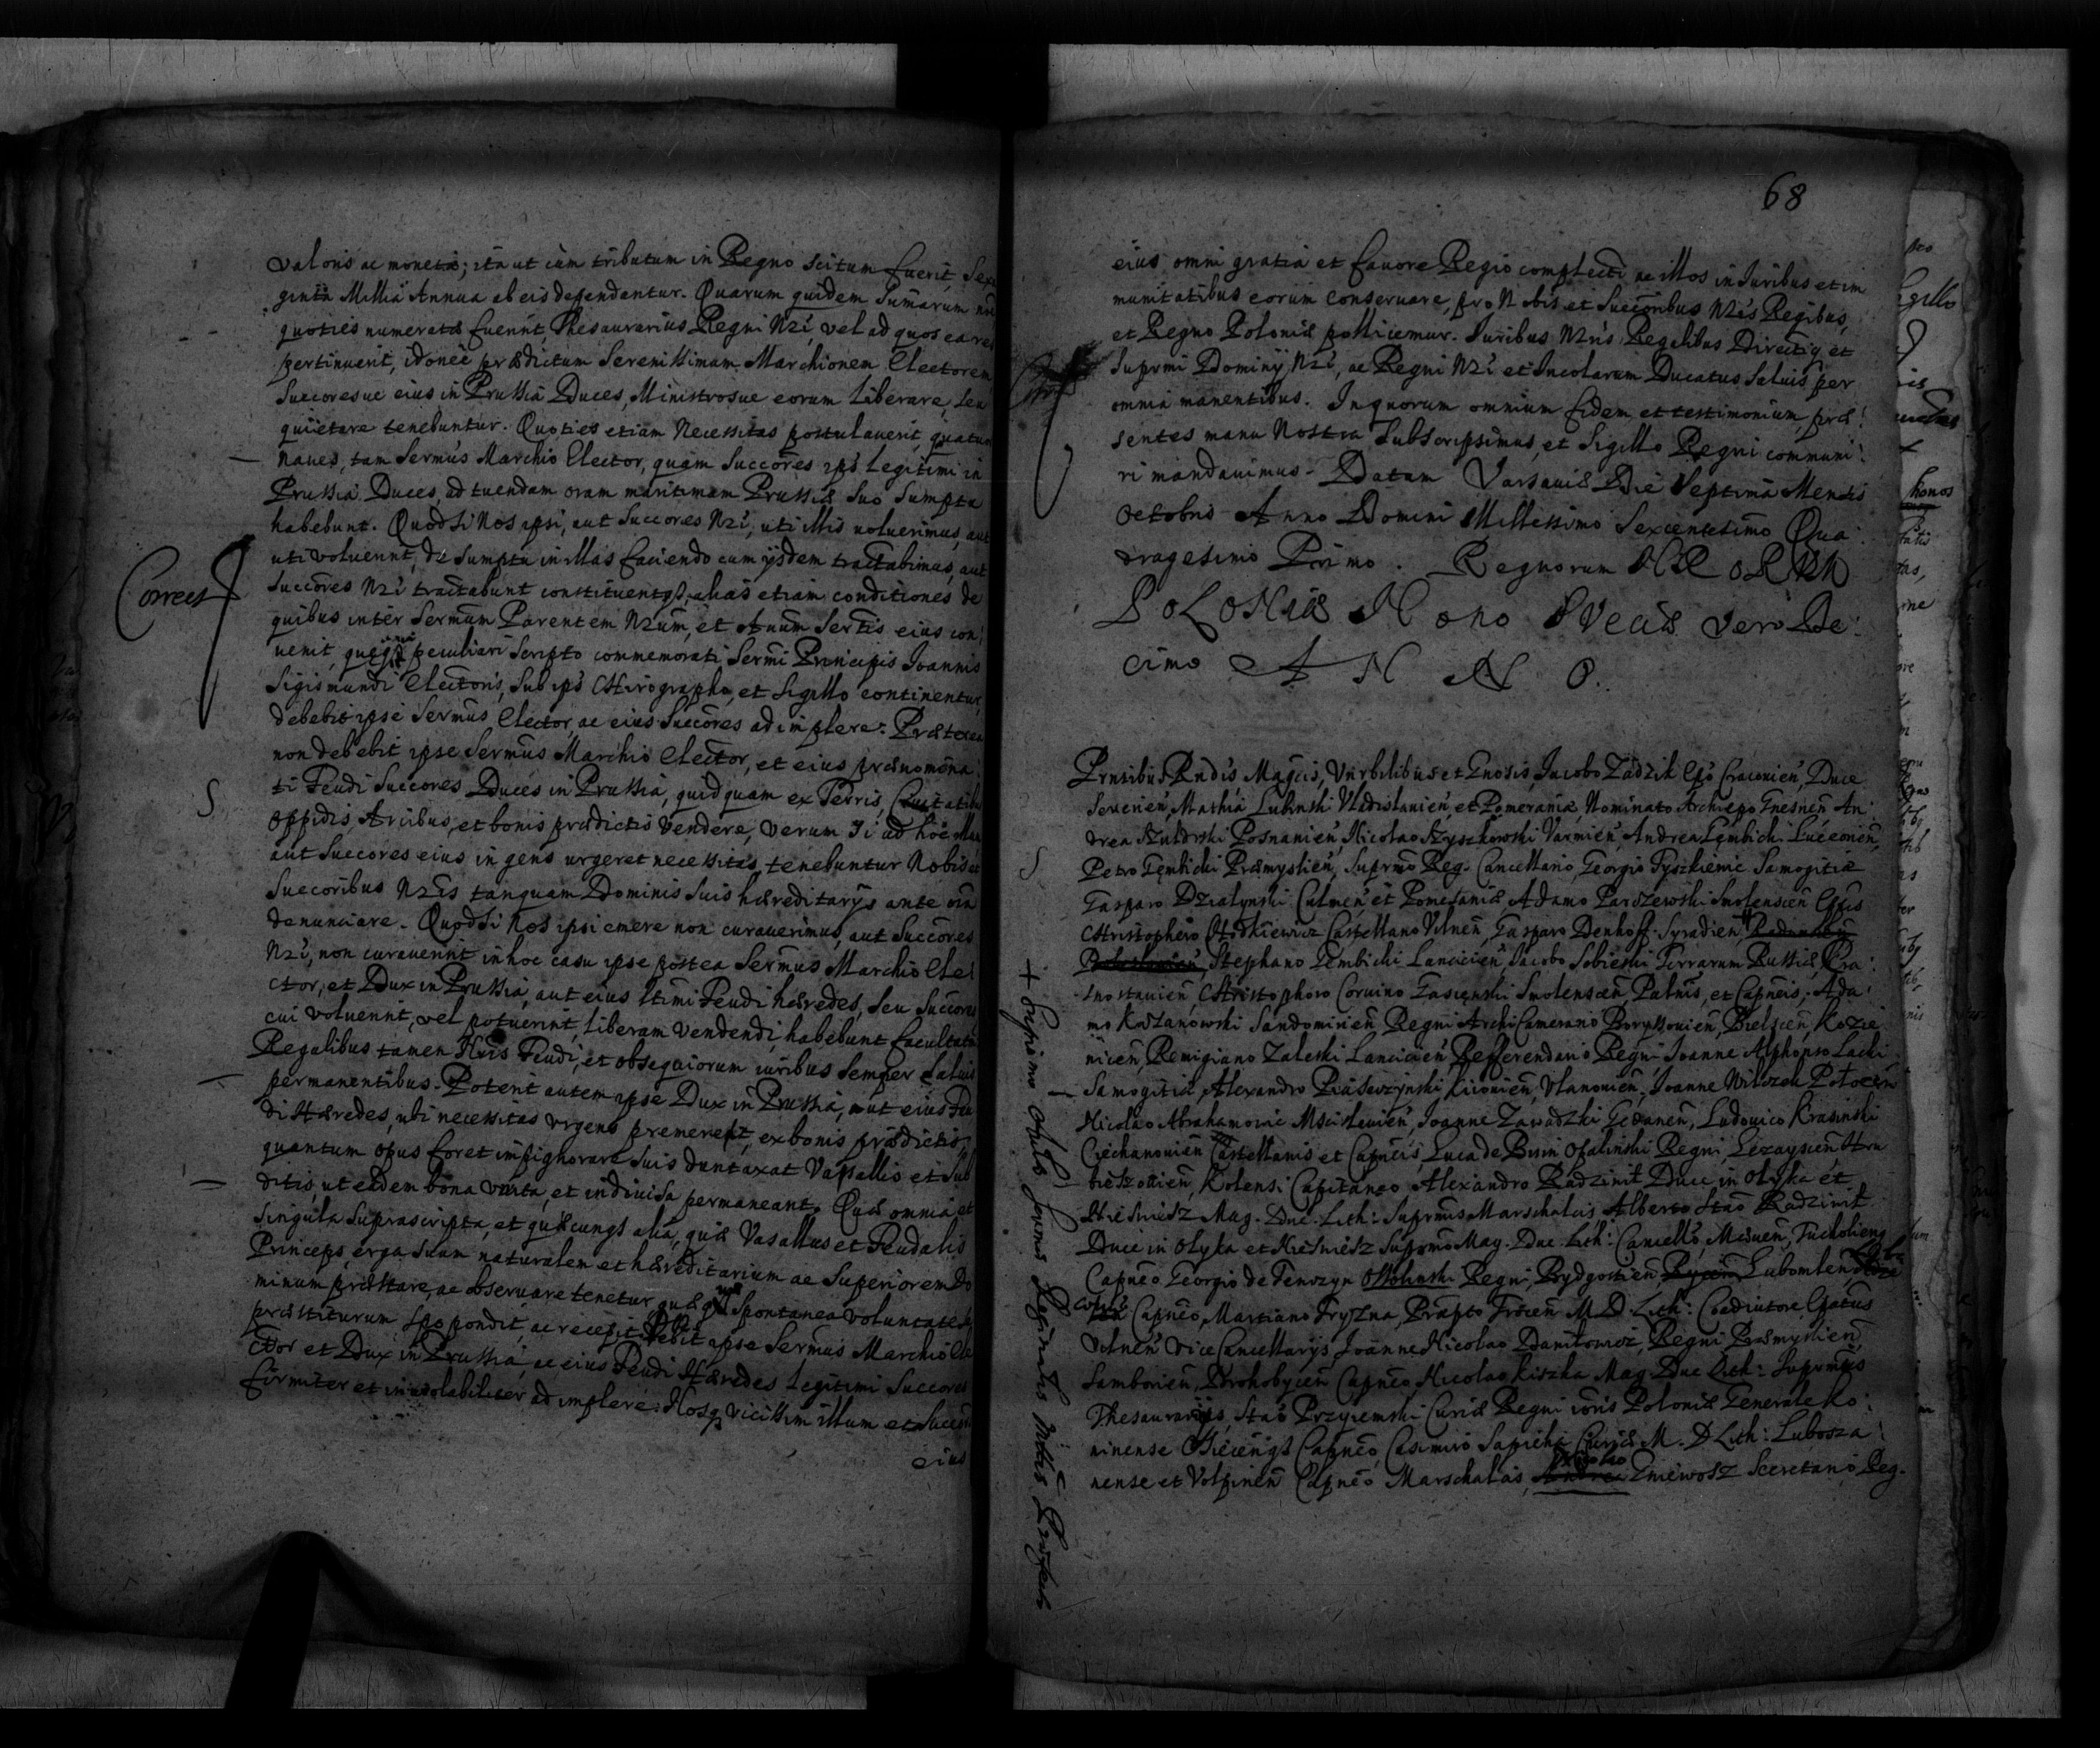 valoris ac moneta; ita ut cum tributum in Regno scitum fuerit, Sexa
ginta Millia Annua ab eis dependantur. Quarum quidem Sumarum
quoties numerata fuerint, Thesaurarius Regni Nri, vel ad quos ea res
pertinuerit, idonee prædictum Serenissimum Marchionem Electorem
Succoresue eius in Prussia Duces, Ministrosue eorum liberare, seu
quietare tenebuntur. Quoties etiam Necessitas postulauerit, quatuor
naues, tam Sermus Marchio Elector, quam Succores ipsi legitimi in
Prussia Duces, ad tuendam oram maritimam Prussiæ suo sumptu
habebunt. Quod si Nos ipsi, aut Succores Nri, uti illis uoluerimus, aut
uti voluerint, de sumptu in illas faciendo cum ijsdem tractabimus, aut
Correct
Succores Nri tractabunt constituentq, alias etiam conditiones de
quibus inter Sermum Parentem Nrum, et Auum Sertis eius con
uenit, peculiari Scripto commemorati Sermi Principis Joannis
Sigismundi Electoris, sub ipsi Chirographo, et Sigillo continentur,
debebit ipse Sermus Elector, ac eius Succores adimplere. Præterea
non debebit ipse Sermus Marchio Elector, et eius prænomina
S
ti Feudi Succores Duces in Prussia, quidquam ex Terris, Ciuitatibus
oppidis, Arcibus, et bonis prædictis vendere, verum si ad hoc
aut Succores eius ingens urgeret necessitas, tenebuntur Nobis
Succoribus Nris tanquam Dominis suis hæreditarijs ante oia
denunciare. Quod si Nos ipsi emere non curauerimus, aut Succores
Nri, non curauerint, in hoc casu ipse postea Sermus Marchio Ele
ctor, et Dux in Prussia, aut eius ltimi Feudi hæredes, seu Succores
cui voluerint, vel potuerint, liberam vendendi, habebunt facultatem
Regalibus tamen Feudi, et obsequiorum iuribus semper saluis
permanentibus. Poterit autem ipse Dux in Prussia, aut eius Feu
di Hæredes, ubi necessitas urgens premeret, ex bonis prædictis
quantum opus foret impignorare suis duntaxat Vasallis et Sub
ditis, ut eadem bona vnita, et indiuisa permaneant. Quæ omnia et
singula suprascripta, et quæcunq alia, quæ Vasallus et Feudalis
Princeps, erga suum naturalem et hæreditarium ac Superiorem Do
minum præstare, ac obseruare tenetur, spontanea voluntate
præstiturum spopondit, ac recepit debebit ipse Sermus Marchio Ele
ctor et Dux in Prussia, ac eius Feudi Hæredes Legitimi Succores
firmiter et inuiolabiliter adimplere. Nosq vicissim illum et Succes
eius
68
eius omni gratia et fauore Regio complecti ac illos in Juribus et im
munitatibus eorum conseruare, pro Nobis et Succoribus Nris Regibus,
et Regno Poloniæ pollicemur. Juribus Nris Regalibus Directiq et
Supremi Dominij Nri, ac Regni Nri et Incolarum Ducatus saluis per
omnia manentibus. In quorum omnium fidem et testimonium, præ
sentes manu Nostra Subscripsimus, et Sigillo Regni communi
ri mandauimus. Datum Varsauiæ Die Septima Mensis
Octobris Anno Domini Millessimo Sexcentesimo Qua
dragesimo Primo. Regnorum NRORUM
POLONIÆ Nono SVeciæ vero De
cimo ANNO.
Prntibus Rndis Magcis, Vnrbilibus et Gnosis, Jacobo Zadzik Epo Cracouien, Duce
Seuerien, Mathia Lubinski Vladislauien, et Pomeraniæ, Nominato Archiepo Gnesnen An
drea Szuldrski Posnanien, Nicolao Szyszkowski Varmien, Andrea Gembicki Luceorien,
S
Petro Gembicki Præmyslien, Supremo Reg. Cancellario, Georgio Tyszkiewic Samogitiæ
Gasparo Dzialynski Culmen et Pomesaniæ Adamo Parszewski Smolenscen Epis
Christophoro Chodkiewicz Castellano Vilnen, Gasparo Denhoff Syradien,
Stephano Gembicki Lancicien, Jacobo Sobieski Terrarum Russiæ, Cra
snostauien Christophoro Coruino Gasiewski Smolenscen Palnis, et Capneis, Ada
mo Kazanowski Sandomirien, Regni Archi Camerario Boryssouien, Bielscen, Kozie
nicen, Remigiano Zaleski Lancicien Refferendario Regni Joanne Alphonso Lacki
Samogitiæ, Alexandro Piaseczynski Kiiouien, Vlanouien, Joanne Wilczek
Nicolao Abrahamowic Mscislauien, Joanne Zawadzki Gedanen, Ludouico Krasinski
Ciechanouien Castellanis et Capneis, Luca de Bnin Opalinski Regni, Lezaysien, Hru
bieszouien, Kolensi Capitaneo Alexandro Radziuil Duce in Olyka et
Niesuiesz Mag. Duc. Lith: Supremis Marschalcis Alberto Stao Radziuil
Duce in Olyka et Niesuiesz Supremo Mag. Duc. Lith: Cancello, Mscuen, Tucholienq
Capneo Georgio de Tenczyn Ossolinski Regni, Bydgostien Lubomlen
Capneo, Martiano Tryzna, Præpto Trocen M. D. Lith: Coadiutore Epatus
Vilnen Vice Cancellarijs, Joanne Nicolao Danilowicz, Regni Præmyslien,
Samborien, Drohobycen Capneo Nicolao Kiszka Mag. Duc Lith: Supremis
Thesaurarijs, Stao Przyiemski Curiæ Regni ioris Poloniæ Generale Ko
ninense Capneo, Casimiro Sapieha Curiæ M. D Lith: Lubosza
nense et Volpinen Capneo Marschalcis, Gniewosz Secretario Reg.